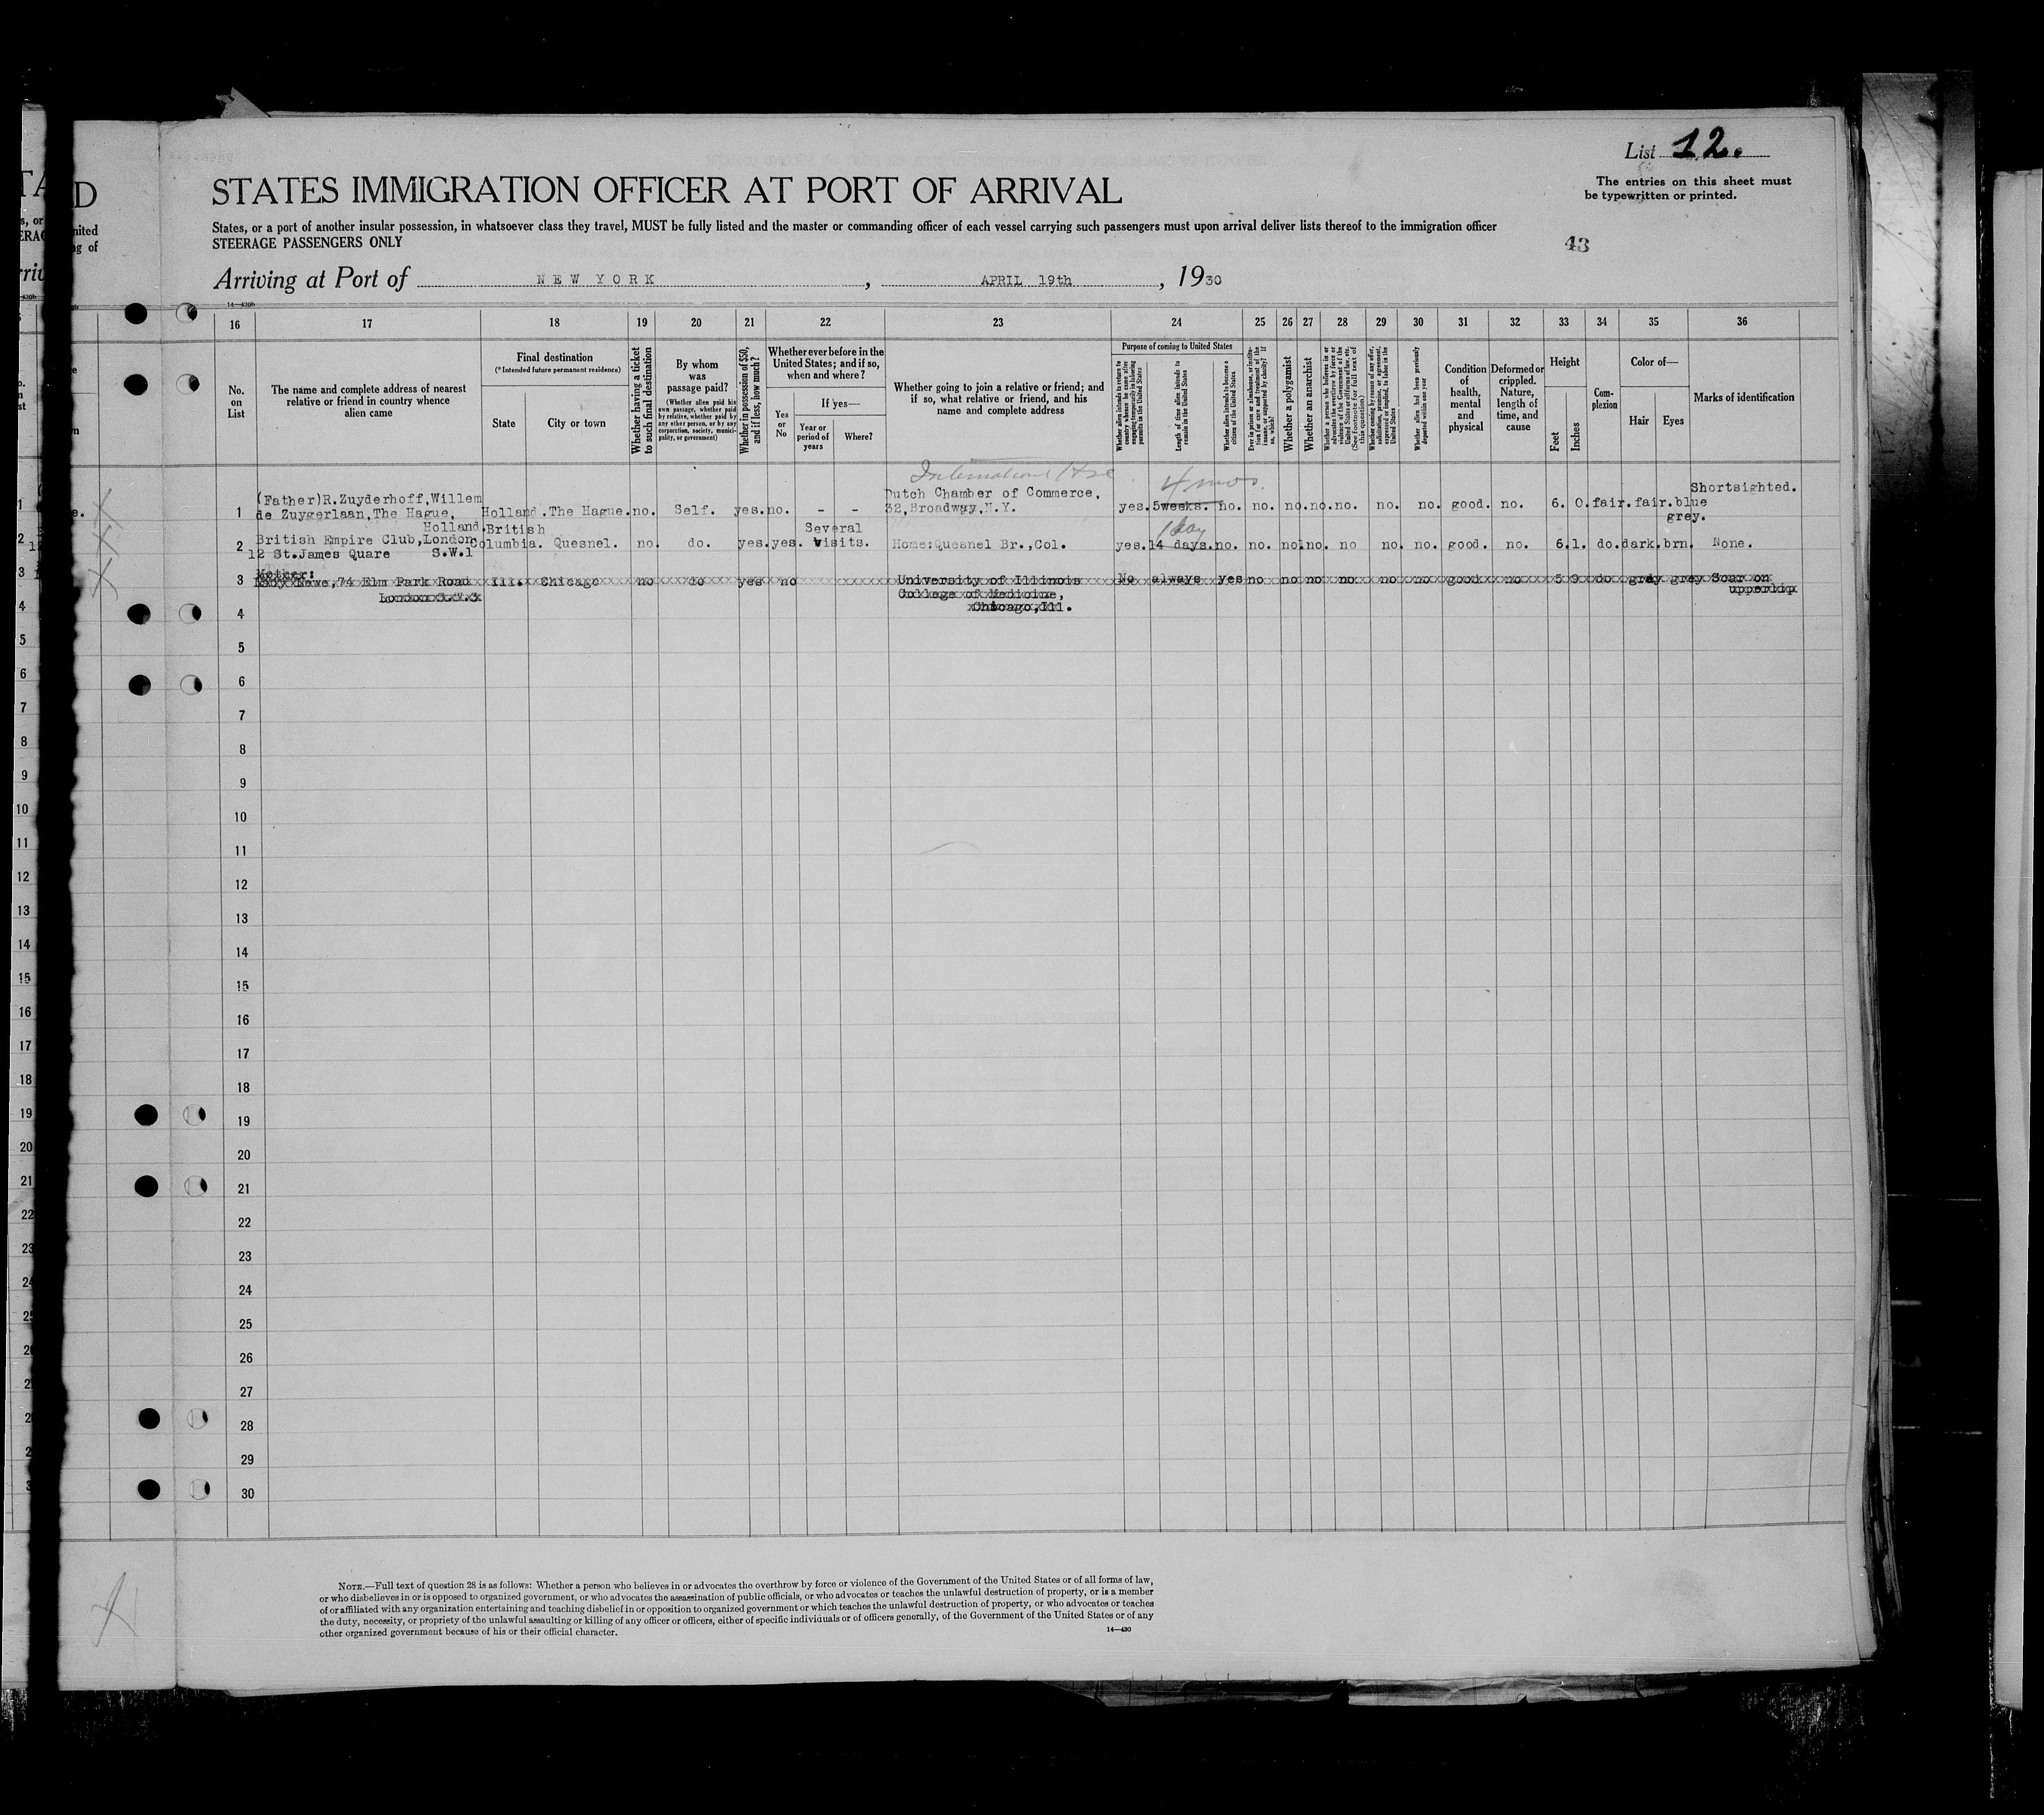 List 12.
The entries on this sheet must
be typewritten or printed.
STATES IMMIGRATION OFFICER AT PORT OF ARRIVAL
States, or a port of another insular possession, in whatsoever class they travel, MUST be fully listed and the master or commanding officer of each vessel carrying such passengers must upon arrival deliver lists thereof to the immigration officer
STEERAGE PASSENGERS ONLY
43
Arriving at Port of NEW YORK, APRIL 19th, 1930
16 17 18 19 20 21 22 23 24 25 26 27 28 29 30 31 32 33 34 35 36
No. on List
The name and complete address of nearest
relative or friend in country whence
alien came
Final destination
(* Intended future permanent residence)
State
City or town
Whether having a ticket
to such final destination
By whom
was
passage paid?
(Whether alien paid his
own passage, whether paid
by relative, whether paid by
any other person, or by any
corporation, society, munici-
pality, or government)
Whether in possession of $50,
and if less, how much?
Whether ever before in the
United States; and if so,
when and where?
Yes
or
No
If yes—
Year or
period of
years
Where?
Whether going to join a relative or friend; and
if so, what relative or friend, and his
name and complete address
Purpose of coming to United States
Length of time alien intends to
remain in the United States
Whether alien intends to become a
citizen of the United States
Whether a polygamist
Whether an anarchist
Whether alien had been previously
deported within one year
Condition
of
health,
mental
and
physical
Deformed or
crippled.
Nature,
length of
time, and
cause
Height
Feet
Inches
Com-
plexion
Color of—
Hair
Eyes
Marks of identification
International Hse
4 mos.
1 (Father)R.Zuyderhoff,Willem
de Zuygerlaan,The Hague,
Holland.
Holland. The Hague. no. Self. yes. no. - - Dutch Chamber of Commerce,
32,Broadway,N.Y.
yes. 5weeks. no. no. no. no. no. no. no. good. no. 6. 0. fair. fair. blue
grey.
Shortsighted.
1 day
2 British Empire Club,London
12 St.James Quare S.W.1
British
Columbia. Quesnel. no. do. yes. yes. Several
visits.
Home:Quesnel Br.,Col. yes. 14 days. no. no. no. no. no no. no. good. no. 6. 1. do. dark. brn. None.
3 Mother:
Newe,74 Elm Park Road
London S.W.3
Ill. Chicago no do yes no University of Illinois
College of Medicine,
Chicago,Ill.
No always yes no no no no no no good no 5 9 do grey grey Scar on
upperlip
4
5
6
7
8
9
10
11
12
13
14
15
16
17
18
19
20
21
22
23
24
25
26
27
28
29
30
NOTE.—Full text of question 28 is as follows: Whether a person who believes in or advocates the overthrow by force or violence of the Government of the United States or of all forms of law,
or who disbelieves in or is opposed to organized government, or who advocates the assassination of public officials, or who advocates or teaches the unlawful destruction of property, or is a member
of or affiliated with any organization entertaining and teaching disbelief in or opposition to organized government or which teaches the unlawful destruction of property, or who advocates or teaches
the duty, necessity, or propriety of the unlawful assaulting or killing of any officer or officers, either of specific individuals or of officers generally, of the Government of the United States or of any
other organized government because of his or their official character.
14—430